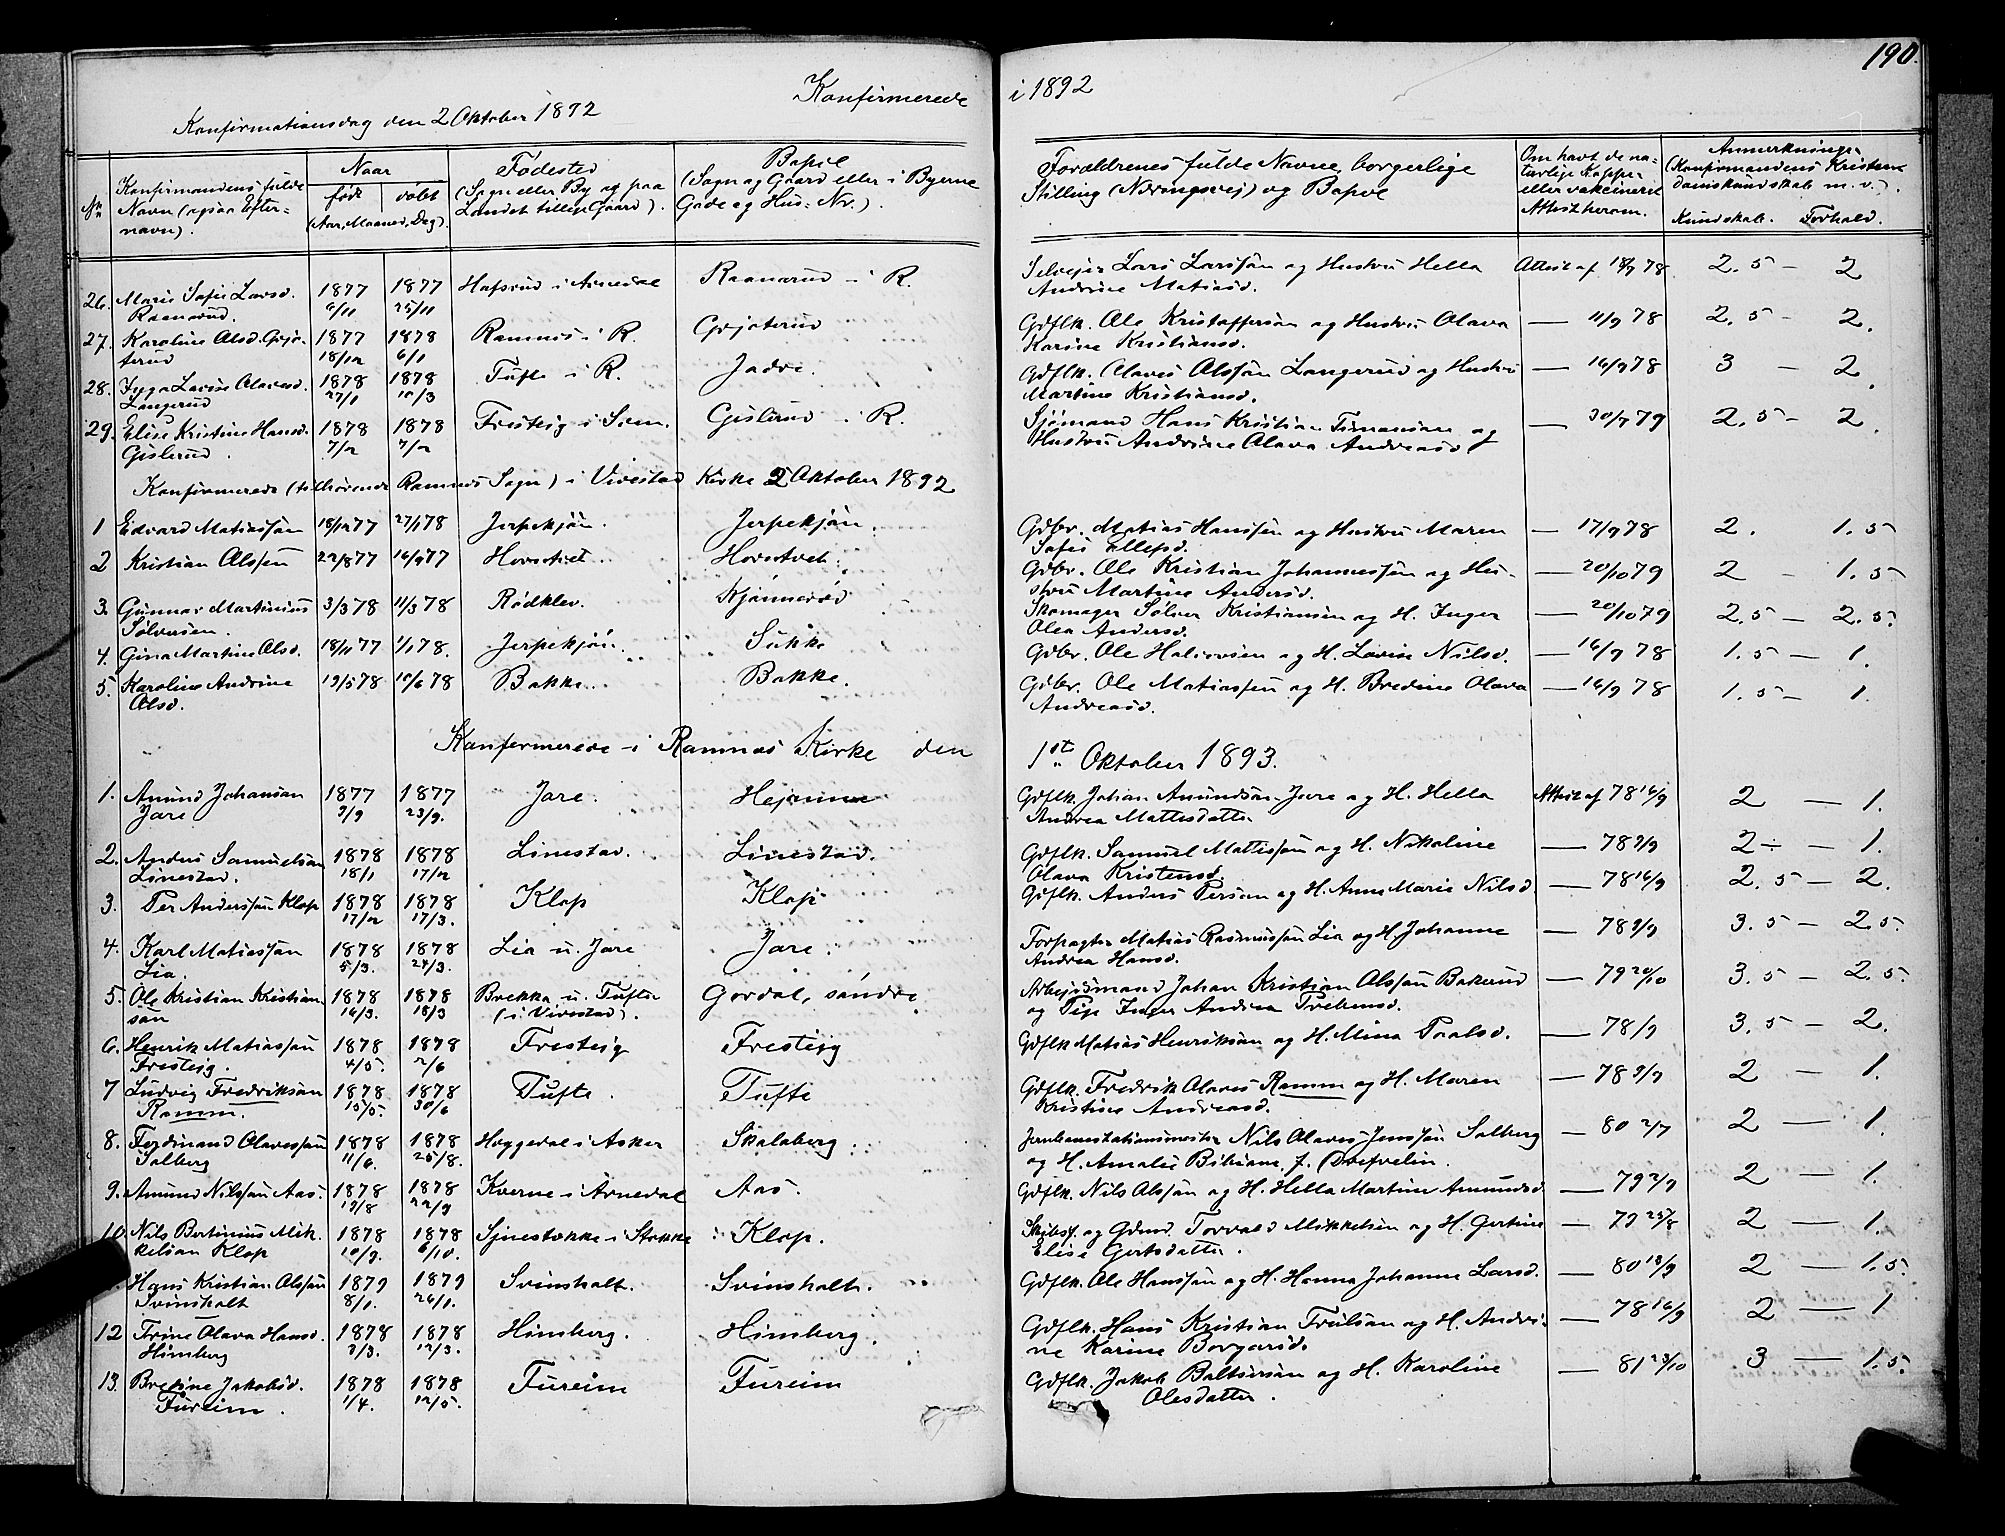 190.
Konfirmerede i 1892
Konfirmationsdag den 2 Oktober 1892
No Konfirmandens fulde Navn (ogsaa Efternavn). Naar født døbt (Aar, Maaned, Dag). Fødested (Sogn eller By og paa Landet tillige Gaard). Bopæl (Sogn og Gaard eller i Byerne Gade og Hus-Nr.). Forældrenes fulde Navne, borgerlige Stilling (Næringsvej) og Bopæl Om havt de naturlige Kopper eller vakcineret Attest herom. Anmerkninger (Konfirmandens Kristendomskundskab m. v.). Kundskab. Forhold.
26. Marie Sofie Larsd. Raanerud. 1877 6/11 1877 25/11 Hafsrud i Arnedal Raanerud i R. Selvejer Lars Larssøn og Hustru Hella Andrine Matiasd. Attest af 18/9 78 2.5 — 2
27. Karoline Olsd. Grjøterud 1877 18/12 1878 6/1 Ramnes i R. Grjøterud Gdflk. Ole Kristoffersøn og Hustru Olava Karine Kristiansd. — 11/9 78 2.5 — 2.
28. Inga Lovise Olavesd. Langerud 1878 27/1 1878 10/3 Tufte i R. Jadre. Gdflk. Olaves Olssøn Langerud og Hustru Martine Kristiansd. — 16/9 78 3 — 2
29. Elise Kristine Hansd. Gislerud. 1878 7/2 1878 7/2 Frestejg i Sem. Gislerud i R. Sjømand Hans Kristian Simonsen og Hustru Andrine Olava Andreasd — 30/7 79 2.5 — 2.
Konfirmerede (tilhørende Ramnes Sogn) i Vivestad Kirke 2 Oktober 1892
1 Edvard Matiassøn 18/12 77 27/1 78 Jerpekjøn. Jerpekjøn. Gdbr. Matias Hanssøn og Hustru Maren Sofie Ellefsd. — 17/9 78 2. 1.5
2 Kristian Olssøn 22/8 77 16/9 77 Hovsetvet. Hovsetvet. Gdbr. Ole Kristian Johannessøn og Hustru Martine Andersd. — 20/10 79 2 — 1.5
3. Gunnar Martinius Sølversen. 3/3 78 11/3 78 Rødklev. Kjønnerød Skomager Sølver Kristiansen og H. Inger Olea Andersd. — 20/10 79 2.5 — 2.5.
4. Gina Martine Olsd. 18/11 77 1/1 78. Jerpekjøn. Sukke Gdbr. Ole Halvorsen og H. Lovise Nilsd. — 16/9 78 1.5 — 1.
5. Karoline Andrine Olsd. 19/5 78 10/6 78 Bakke. Bakke. Gdbr. Ole Matiassen og H. Bredine Olava Andreasd. — 16/9 78 1.5 — 1.
Konfirmerede i Ramnes Kirke den 1st Oktober 1893.
1. Amund Johansøn Jare 1877 3/9 1877 23/9. Jare. Hejmme Gdflk. Johan Amundsøn Jare og H. Hella Andrea Mattisdatter Attest af 78 16/9 2 — 1.
2. Anders Samuelsøn Linestad. 1878 18/1 1878 17/2 Linestad. Linestad. Gdflk. Samuel Mattissøn og H. Nikoline Olava Kristensd. — 78 9/9 2÷ — 1.
3. Per Anderssøn Klop 1878 17/2 1878 17/3. Klop Klop Gdflk. Anders Persøn og H. Anne Marie Nilsd — 78 16/9 2.5 — 2.
4. Karl Matiassøn Lia. 1878 5/3. 1878 24/3. Lia u. Jare Jare. Forpagter Matias Rasmussøn Lia og H. Johanne Andrea Hansd. — 78 9/9 3.5 — 2.5.
5. Ole Kristian Kristiansøn 1878 16/3. 1878 18/3 Brekka u. Tufte (i Vivestad). Gordal, søndre Arbejdsmand Johan Kristian Olssøn Bakerud og Pige Inger Andrea Trelensd. — 79 20/10 3.5 — 2.5.
6. Henrik Matiassøn Frestejg. 1878 4/5. 1878 2/6 Frestejg Frestejg Gdflk Matias Henriksøn og H. Mina Paalsd. — 78 /9 3.5 — 2.
7 Ludvig Fredriksøn Ramm. 1878 15/5. 1878 30/6 Tufte. Tufte Gdflk. Fredrik Olaves Ramm og H. Maren Kristine Andreasd. — 78 9/9 2 — 1.
8. Ferdinand Olavessøn Solberg 1878 11/6. 1878 25/8. Hoggeval i Asker Skalaberg. Jernbanestationsmester Nils Olaves Jenssøn Solberg og H. Amalie Bibiane f. — 80 2/7 2 — 1.
9. Amund Nilssøn Aas. 1878 19/8 1878 22/9 Kverne i Arnedal Aas. Gdflk. Nils Olssøn og H. Hella Martine Amundsd — 79 2/9 2 — 1.
10. Nils Bertinius Mikkelsøn Klop 1878 10/9. 1878 6/10. Sjuestokke i Stokke Klop. Skibsf. og Gdmd. Torvald Mikkelsen og H. Gertine Elise Gertsdatter. — 79 25/8 2 — 1.
Hans Kristian Olssøn Svinsholt 1879 8/1. 1879 26/1. Svinsholt. Svinsholt. Gdflk. Ole Hanssøn og H. Hanna Johanne Larsd. — 80 13/9 2 — 1.5.
12 Trine Olava Hansd. Himberg 1878 2/3. 1878 12/3. Himberg. Himberg. Gdflk. Hans Kristian Trulsøn og H. Andrine Karine Borgarsd. — 78 16/9 2 — 1
13. Bredine Jakobsd. Fureim. 1878 1/4. 1878 12/5. Fureim Fureim Gdflk. Jakob Baltsersøn og H. Karoline Olesdatter. — 81 23/10 3 — 1.5.